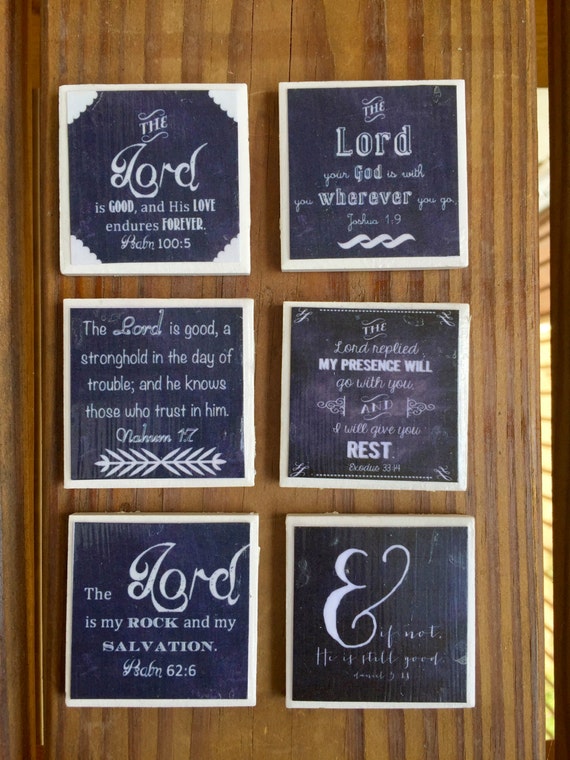 THE
Lord
is GOOD, and His LOVE
endures FOREVER.
Psalm 100:5
THE
Lord
your God is with
you wherever you go.
Joshua 1:9
The Lord is good, a
stronghold in the day of
trouble; and he knows
those who trust in him.
Nahum 1:7
THE
Lord replied
MY PRESENCE WILL
go with you.
AND
I will give you
REST.
Exodus 33:14
The Lord
is my ROCK and my
SALVATION.
Psalm 62:6
&
if not,
He is still good.
daniel 3:18